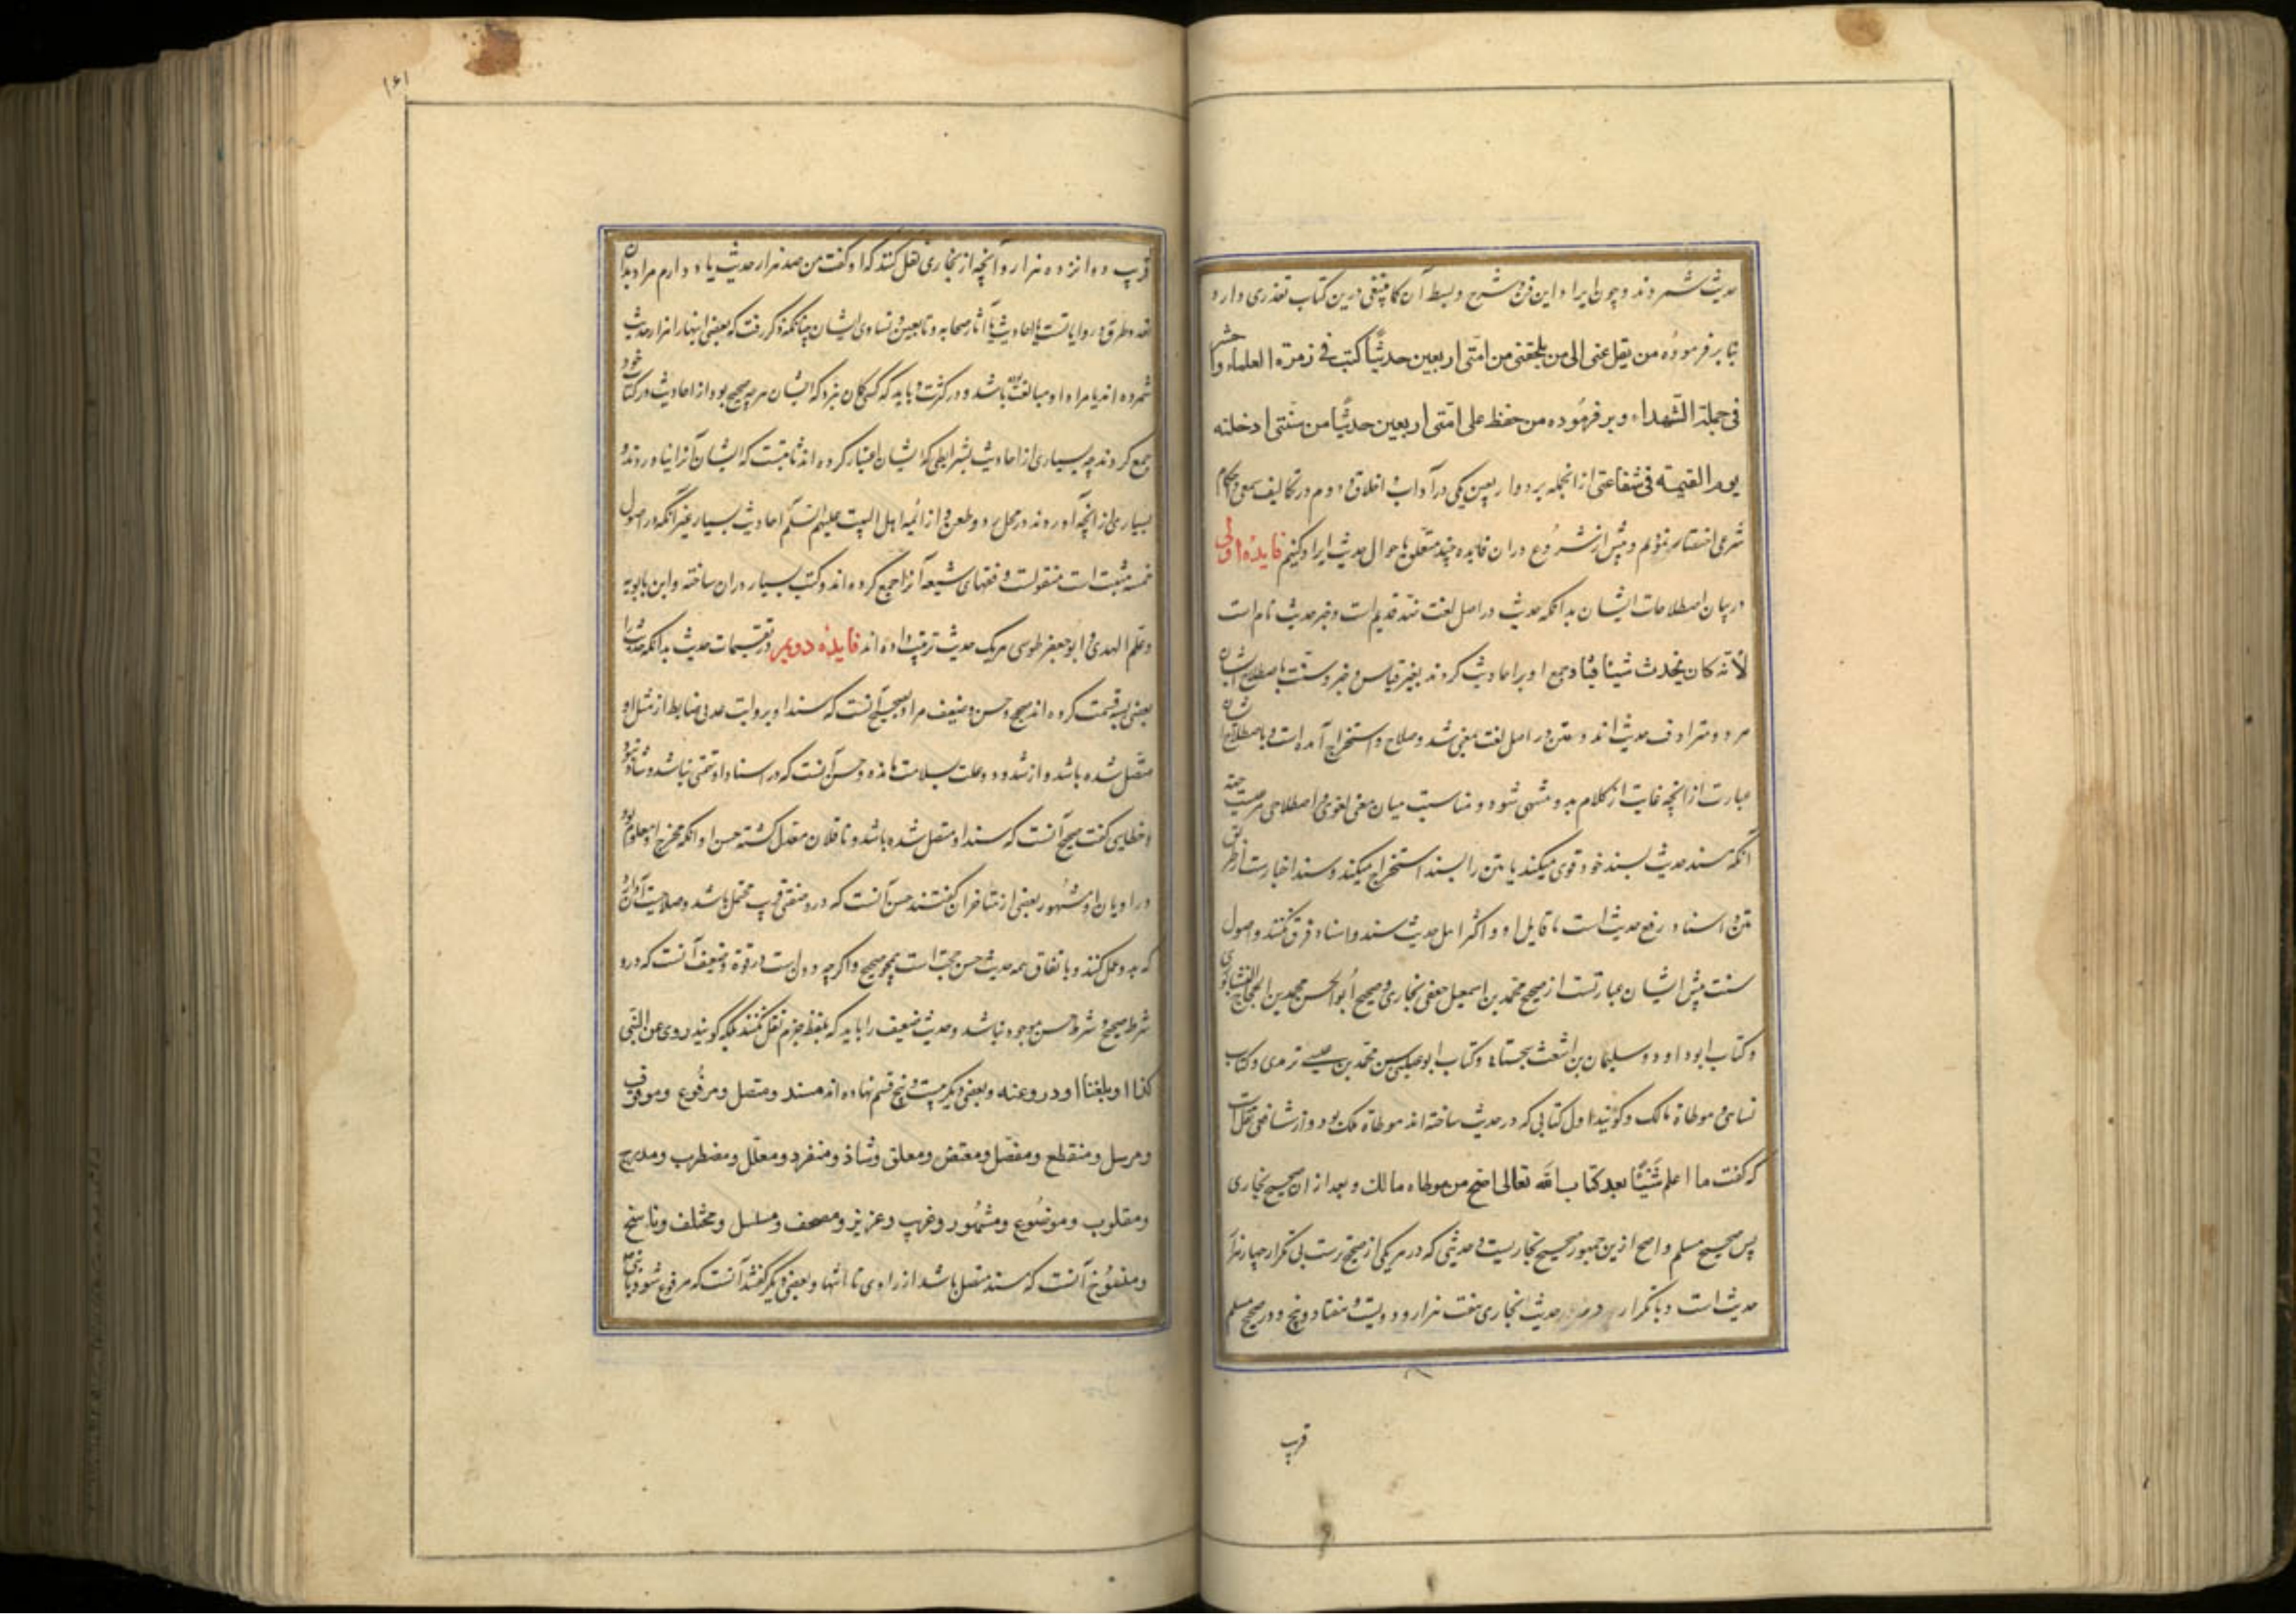 حدیث شمردند و چون ایراد این فن و شرح و بسط آن کما ینبغی درین کتاب تعذری دارد
بنابر فرمودهٔ من نقل عنی الی من یلحقنی من امتی اربعین حدیثاً کتب فی زمرة العلماء و حشر
فی جملة الشهداء و بر فرموده من حفظ علی امتی اربعین حدیثاً من سنتی ادخلته
یوم القیمة فی شفاعتی از انجمله بر دو اربعین یکی در آداب و اخلاق و دوم در تکالیف سمعی و احکام
شرعی اختصار نمودیم و پیش از شروع در ان فایده چند متعلق باحوال حدیث ایراد کنیم فایدهٔ اولی
در بیان اصطلاحات ایشان بدانکه حدیث در اصل لغت ضد قدیم است و خبر حدیث نام است
لأنه کان یحدث شیئا فشیئا و جمع او بر احادیث کردند بغیر قیاس و خبر و سنت باصطلاح ایشان
هر دو مترادف حدیث اند و متن در اصل لغت بمعنی شد و صلاح و استخراج آمده است و باصطلاح ایشان
عبارت از انچه غایت از کلام بدو منتهی شود و مناسبت میان معنی لغوی و اصطلاحی هر صحت جهة
انکه سند حدیث بسند خود قوی میکند یا متن را بسند استخراج میکند و سند اخبارست از طریق
متن و اسناد رفع حدیث است با قایل او و اکثر اهل حدیث سند و اسناد فرق نکنند و اصول
سنت پیش ایشان عبارتست از صحیح محمد بن اسمعیل جعفی بخاری و صحیح ابوالحسن محمد بن الحجاج القشیری
و کتاب ابوداود و سلیمان بن اشعث سجستانی و کتاب ابوعیسی بن محمد بن عیسی ترمذی و کتاب
نسائی و موطاة مالک و گویند اول کتابی که در حدیث ساخته اند موطاة مالک بود و از شافعی نقلست
که گفت ما اعلم شیئاً بعد کتاب الله تعالی اصح من موطاء مالک و بعد از ان صحیح بخاری
پس صحیح مسلم و اصح ازین جمهور صحیح بخاریست و حدیثی که در هر یکی از صحیح ترست بی تکرار چهار هزار
حدیث است و با تکرار حدیث بخاری هفت هزار و دویست و هفتاد و پنج و در صحیح مسلم
قریب
۱۶۱
قریب دوانزده هزار و آنچه از بخاری نقل کنند که او گفت من صد هزار حدیث یاد دارم مراد بدان
تعدد طرق و روایاتست یا احادیث با آثار صحابه و تابعین و فتاوی ایشان چنانکه ذکر رفت که بعضی اینها را هزار حدیث
شمرده اند یا مراد او مبالغت بوده باشد در کثرت و باید که کسی گمان نبرد که ایشان هر چه صحیح بود از احادیث در کتاب خود
جمع کردند چه بسیاری از احادیث بشرایطی که ایشان اعتبار کرده اند ثابتست که ایشان آنرا نیاوردند و
بسیاری از آنچه آوردند در محل رد و طعن و از ائمه اهل البیت علیهم السلم احادیث بسیار غیر آنکه در اصول
خمسه مثبت است منقولست و فقهای شیعه آنرا جمع کرده اند و کتب بسیار در ان ساخته و ابن بابویه
و علم الهدی و ابوجعفر طوسی هر یک حدیث ترتیب داده اند فایدهٔ دویم در تقسیمات حدیث بدانکه حدیث را
بعضی بسه قسمت کرده اند صحیح و حسن و ضعیف مراد بصحیح آنست که سند او بروایت عدلی ضابط از مثل او
متصل شده باشد و از شذوذ و علت سلامت مانده و حسن آنست که در اسناد او متهمی نباشد و شاذ نبود
و خطابی گفت صحیح آنست که سند او متصل شده باشد و ناقلان معدل گشته حسن او انکه مخرج او معلوم بود
و راویان او مشهور بعضی از متاخران گفتند حسن آنست که درو ضعفی قریب محتمل باشد و صلاحیت آن دارد
که بدو عمل کنند و باتفاق همه حدیث حسن حجت است همچو صحیح و اگر چه دون است در قوة و ضعیف آنست که درو
شرط صحیح و شرط حسن موجود نباشد و حدیث ضعیف را باید که بلفظ جزم نقل نکنند بلکه گویند روی عن النبی
کذا او بلغنا او ورد عنه و بعضی دیگر بیست و پنج قسم نهاده اند مسند و متصل و مرفوع و موقوف
و مرسل و منقطع و مفصل و معنعن و معلق و شاذ و منفرد و معلل و مضطرب و مدرج
و مقلوب و موضوع و مشهور و غریب و عزیز و مصحف و مسلسل و مختلف و ناسخ
و منسوخ آنست که سند متصل باشد از راوی تا انتها و بعضی دیگر گفتند آنست که مرفوع شود بانبی